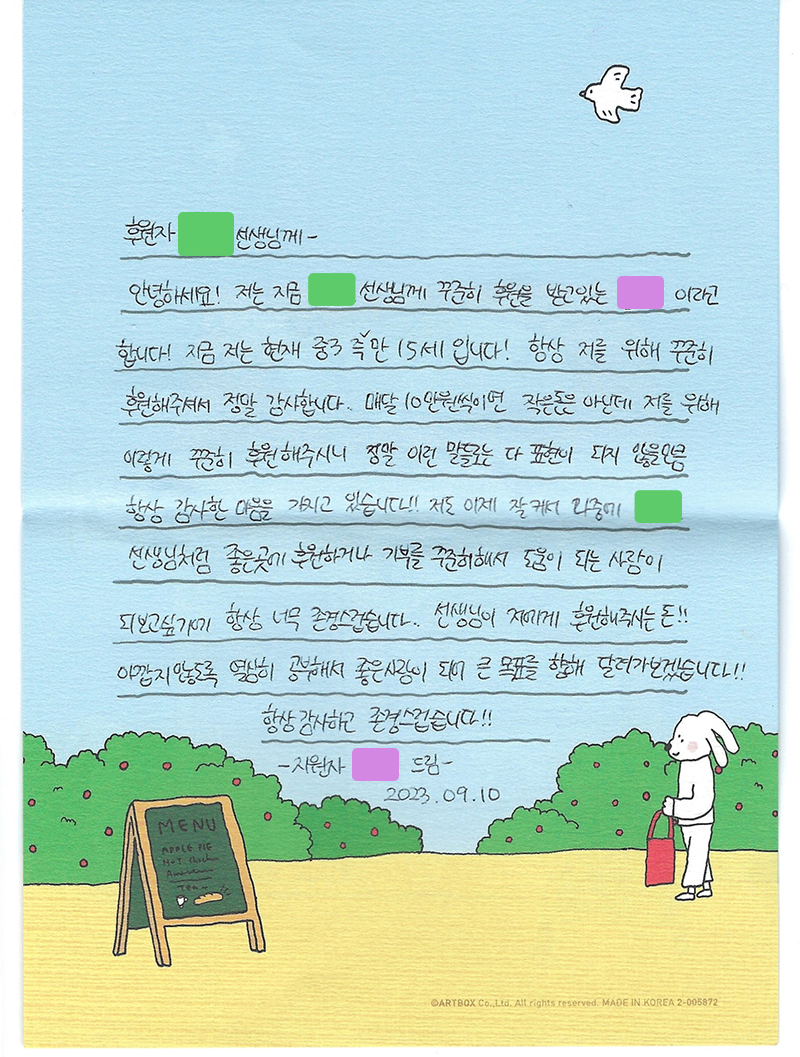 후원자 선생님께-
안녕하세요! 저는 지금 선생님께 꾸준히 후원을 받고있는 이라고
합니다! 지금 저는 현재 중3 즉 만 15세 입니다! 항상 저를 위해 꾸준히
후원해주셔서 정말 감사합니다.. 매달 10만원씩이면 작은돈은 아닌데 저를 위해
이렇게 꾸준히 후원해주시니 정말 이런 말들로는 다 표현이 되지 않을만큼
항상 감사한 마음을 가지고 있습니다!! 저도 이제 잘 커서 나중에
선생님처럼 좋은곳에 후원하거나 기부를 꾸준히해서 도움이 되는 사람이
되보고싶기에 항상 너무 존경스럽습니다.. 선생님이 저에게 후원해주시는 돈!!
아깝지않도록 열심히 공부해서 좋은사람이 되어 큰 목표를 향해 달려가보겠습니다!!
항상 감사하고 존경스럽습니다!!
-지원자 드림-
2023.09.10
MENU
APPLE PIE
HOT
TEA
©ARTBOX Co.,Ltd. All rights reserved. MADE IN KOREA 2-005872